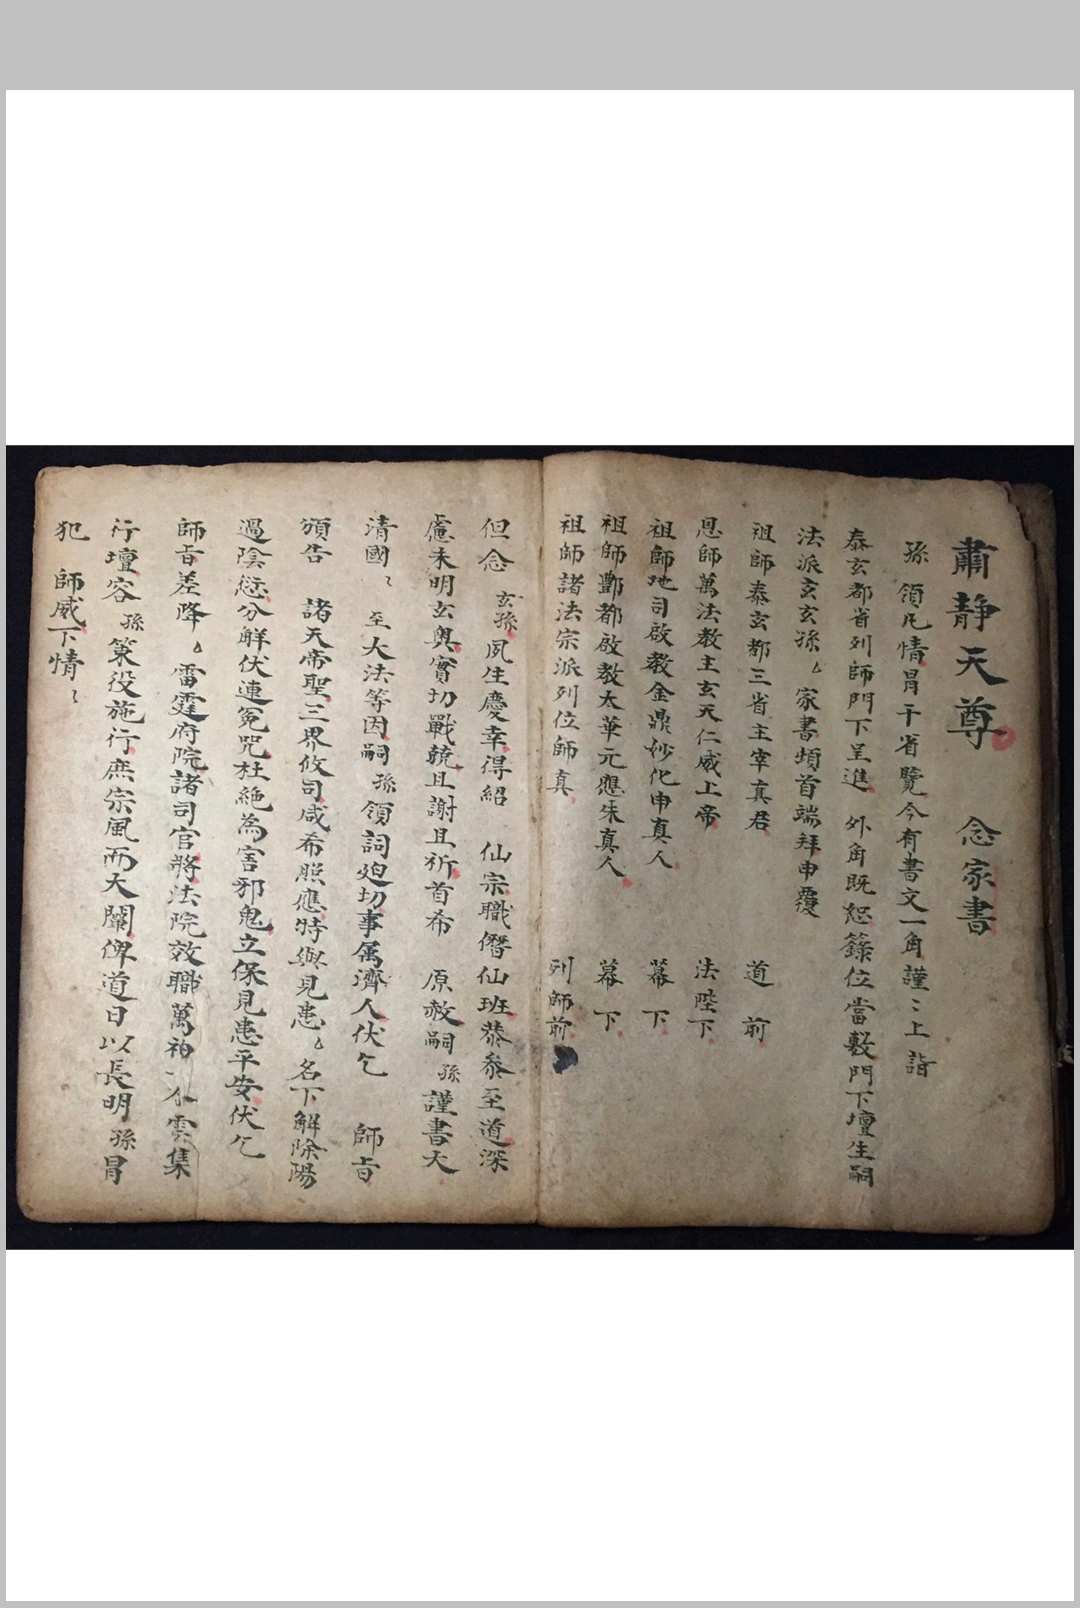 肅静天尊　念家書
孫　領凡情冐干省覽今有書文一角謹〻上　詣
泰玄都省列師門下呈進　外角既恕籙位當敷門下壇生嗣
法派玄玄孫〻　家書頓首端拜申覆
祖師泰玄都三省主宰真君　道　前
恩師萬法教主玄天仁威上帝　法陛下
祖師地司啟教金鼎妙化申真人　幕　下
祖師酆都啟教太華元應朱真人　幕　下
祖師諸法宗派列位師真　列師前
但念　玄孫夙生慶幸得紹　仙宗職僭仙班恭叅至道深
慮未明玄奥實切戰兢且謝且祈首希　原赦嗣孫謹書天
清國〻　至大法等因嗣孫領詞廹切事属濟人伏乞　師旨
頒告　諸天帝聖三界攸司咸希照應特與見患〻名下解除陽
過陰愆分解伏連冤咒杜絶為害邪鬼立保見患平安伏乞
師旨差降〻　雷霆府院諸司官將法院效職萬神雲集
行壇容孫策役施行庶宗風而大闡俾道日以長明孫冐
犯　師威下情〻